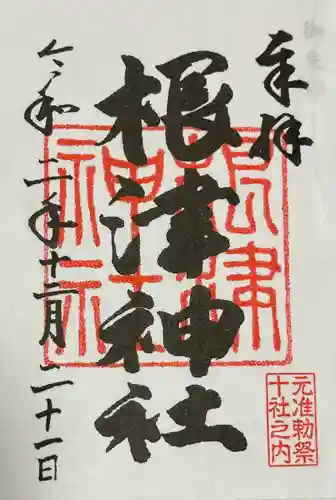 奉拝
根津神社
根津神社
元准勅祭
十社之内
令和二年十二月二十一日